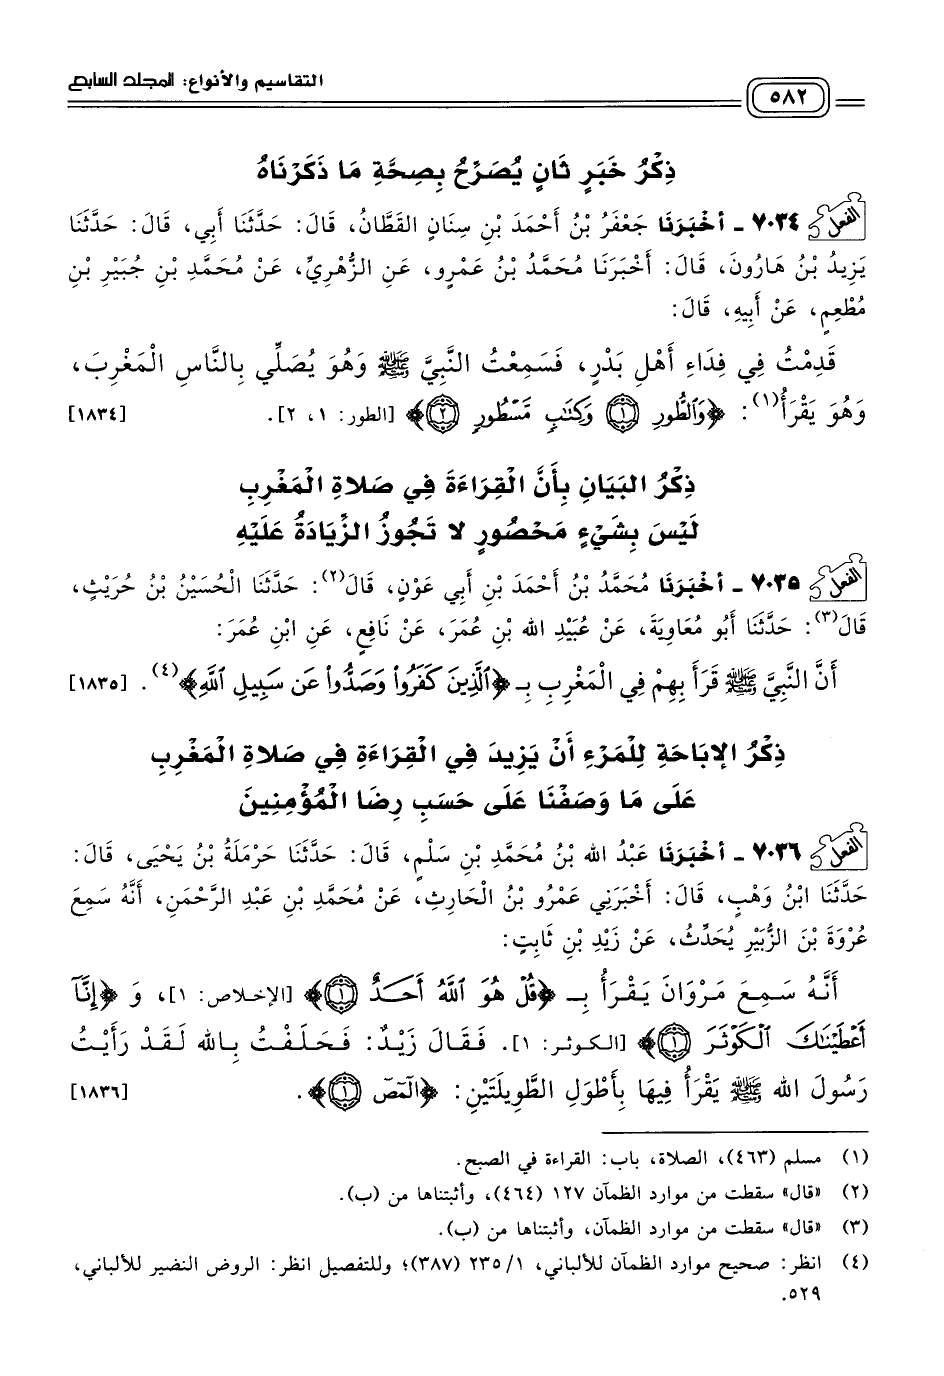 التقاسيم والأنواع: المجلد السابع
٥٨٢
ذِكْرُ خَبَرٍ ثَانٍ يُصَرِّحُ بِصِحَّةِ مَا ذَكَرْنَاهُ
الفعل ٧٠٣٤ - أَخْبَرَنَا جَعْفَرُ بْنُ أَحْمَدَ بْنِ سِنَانٍ القَطَّانُ، قَالَ: حَدَّثَنَا أَبِي، قَالَ: حَدَّثَنَا
يَزِيدُ بْنُ هَارُونَ، قَالَ: أَخْبَرَنَا مُحَمَّدُ بْنُ عَمْرٍو، عَنِ الزُّهْرِيِّ، عَنْ مُحَمَّدِ بْنِ جُبَيْرِ بْنِ
مُطْعِمٍ، عَنْ أَبِيهِ، قَالَ:
قَدِمْتُ فِي فِدَاءِ أَهْلِ بَدْرٍ، فَسَمِعْتُ النَّبِيَّ ﷺ وَهُوَ يُصَلِّي بِالنَّاسِ الْمَغْرِبَ،
وَهُوَ يَقْرَأُ(١): ﴿وَٱلطُّورِ ١ وَكِتَٰبٍ مَّسْطُورٍ ٢﴾ [الطور: ١، ٢]. [١٨٣٤]
ذِكْرُ البَيَانِ بِأَنَّ الْقِرَاءَةَ فِي صَلاةِ الْمَغْرِبِ
لَيْسَ بِشَيْءٍ مَحْصُورٍ لا تَجُوزُ الزِّيَادَةُ عَلَيْهِ
الفعل ٧٠٣٥ - أَخْبَرَنَا مُحَمَّدُ بْنُ أَحْمَدَ بْنِ أَبِي عَوْنٍ، قَالَ(٢): حَدَّثَنَا الْحُسَيْنُ بْنُ حُرَيْثٍ،
قَالَ(٣): حَدَّثَنَا أَبُو مُعَاوِيَةَ، عَنْ عُبَيْدِ الله بْنِ عُمَرَ، عَنْ نَافِعٍ، عَنِ ابْنِ عُمَرَ:
أَنَّ النَّبِيَّ ﷺ قَرَأَ بِهِمْ فِي الْمَغْرِبِ بِـ ﴿ٱلَّذِينَ كَفَرُواْ وَصَدُّواْ عَن سَبِيلِ ٱللَّهِ﴾(٤). [١٨٣٥]
ذِكْرُ الإبَاحَةِ لِلْمَرْءِ أَنْ يَزِيدَ فِي الْقِرَاءَةِ فِي صَلاةِ الْمَغْرِبِ
عَلَى مَا وَصَفْنَا عَلَى حَسَبِ رِضَا الْمُؤْمِنِينَ
الفعل ٧٠٣٦ - أَخْبَرَنَا عَبْدُ الله بْنُ مُحَمَّدِ بْنِ سَلْمٍ، قَالَ: حَدَّثَنَا حَرْمَلَةُ بْنُ يَحْيَى، قَالَ:
حَدَّثَنَا ابْنُ وَهْبٍ، قَالَ: أَخْبَرَنِي عَمْرُو بْنُ الْحَارِثِ، عَنْ مُحَمَّدِ بْنِ عَبْدِ الرَّحْمَنِ، أَنَّهُ سَمِعَ
عُرْوَةَ بْنَ الزُّبَيْرِ يُحَدِّثُ، عَنْ زَيْدِ بْنِ ثَابِتٍ:
أَنَّهُ سَمِعَ مَرْوَانَ يَقْرَأُ بِـ ﴿قُلْ هُوَ ٱللَّهُ أَحَدٌ ١﴾ [الإخلاص: ١]، وَ ﴿إِنَّآ
أَعْطَيْنَٰكَ ٱلْكَوْثَرَ ١﴾ [الكوثر: ١]. فَقَالَ زَيْدٌ: فَحَلَفْتُ بِالله لَقَدْ رَأَيْتُ
رَسُولَ الله ﷺ يَقْرَأُ فِيهَا بِأَطْوَلِ الطَّوِيلَتَيْنِ: ﴿الٓمٓصٓ ١﴾. [١٨٣٦]
(١) مسلم (٤٦٣)، الصلاة، باب: القراءة في الصبح.
(٢) «قال» سقطت من موارد الظمآن ١٢٧ (٤٦٤)، وأثبتناها من (ب).
(٣) «قال» سقطت من موارد الظمآن، وأثبتناها من (ب).
(٤) انظر: صحيح موارد الظمآن للألباني، ١/ ٢٣٥ (٣٨٧)؛ وللتفصيل انظر: الروض النضير للألباني،
٥٢٩.